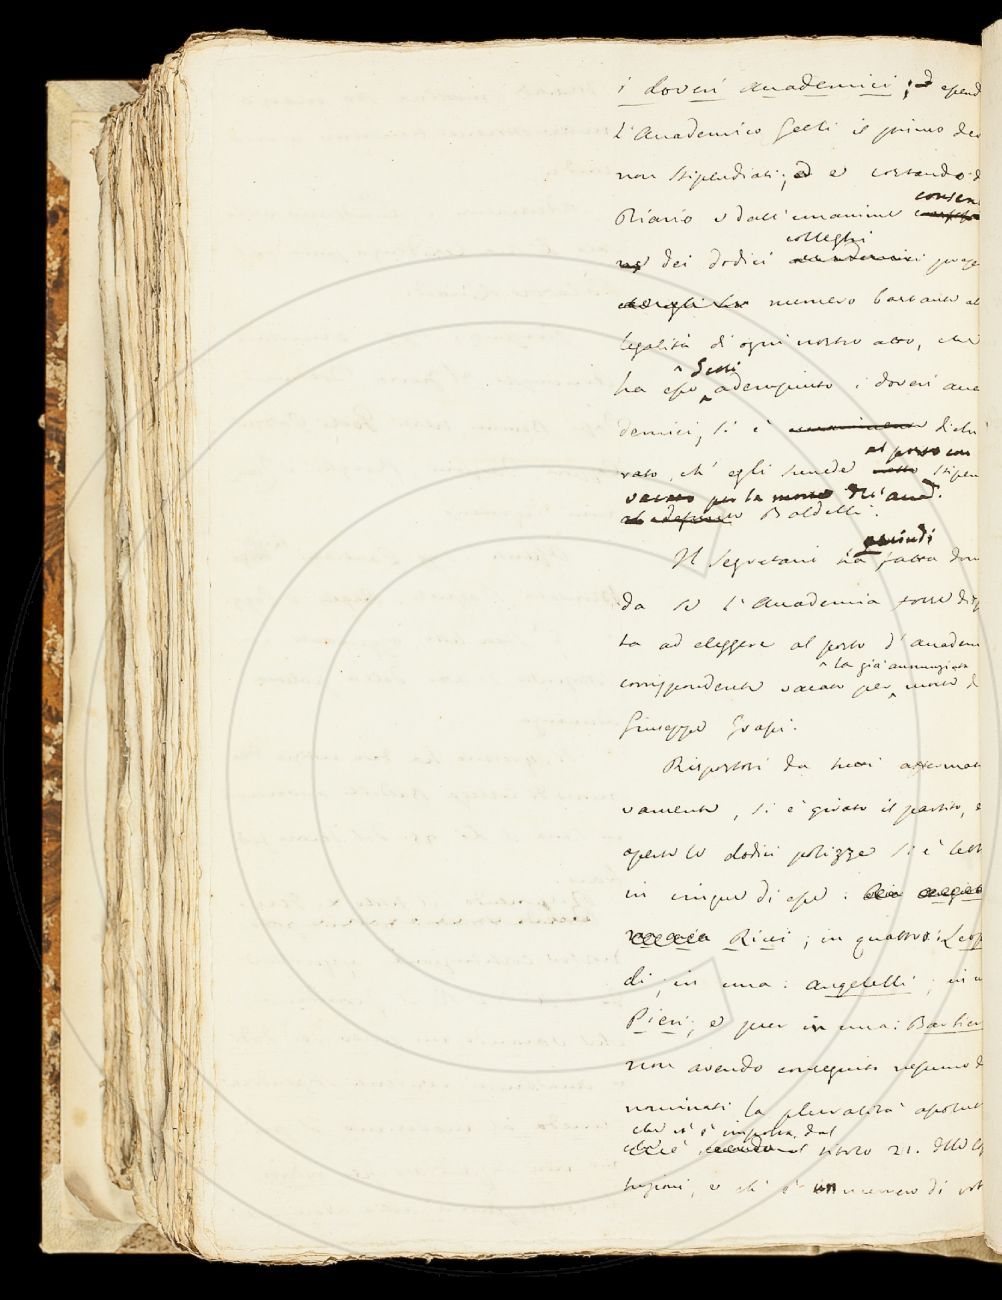 i doveri accademici; d essend
l'Accademico Gelli il primo de
non stipendiati; ed e costando d
Diario e dall'unanime consen
dei dodici colleghi prese
numero bastante al
legalità di ogni nostro atto, che
ha esso Gelli adempiuto i doveri acca
demici, si è dichi
rato, ch'egli succede al posto con stipen
vacato per la morte dell'accad.
Baldelli.
Il Segretario ha quindi fatto don
da se l'Accademia fosse disp
ta ad eleggere al posto d'accadem
corrispondente vacato per la già annunziata morte d
Giuseppe Grassi.
Rispostosi da tutti affermati
vamente, si è girato il partito, e
aperte le dodici polizze si è lett
in cinque di esse:
Ricci; in quattro: Leop
di; in una: Angelelli; in u
Pieri; e pur in una: Barbieri
non avendo conseguito nessuno d
nominati la pluralità assolut
che ci è imposta dal titolo 21. delle C
tuzioni, e ch'è un numero di vot